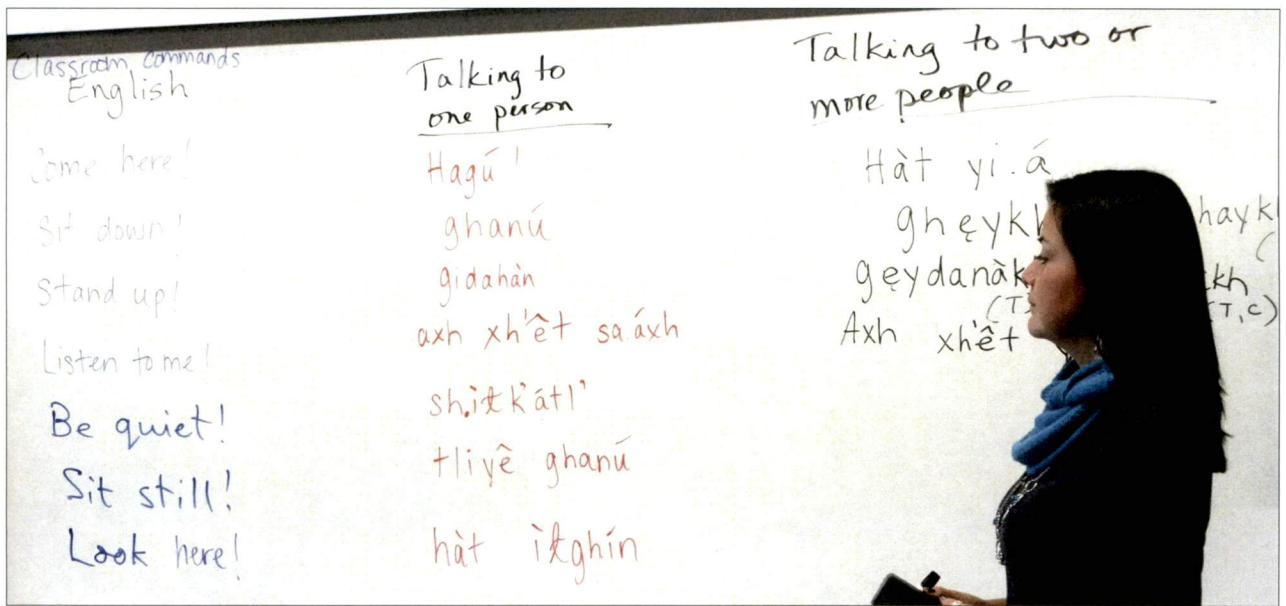 Classroom commands
English
Come here!
Sit down!
Stand up!
Listen to me!
Be quiet!
Sit still!
Look here!
Talking to
one person
Hagú!
ghanú
gidahàn
axh xh'êt sa.áxh
sh.ìłk'átl'
tliyê ghanú
hàt ìłghín
Talking to two or
more people
Hàt yi.á
(T,C)
Axh xh'êt